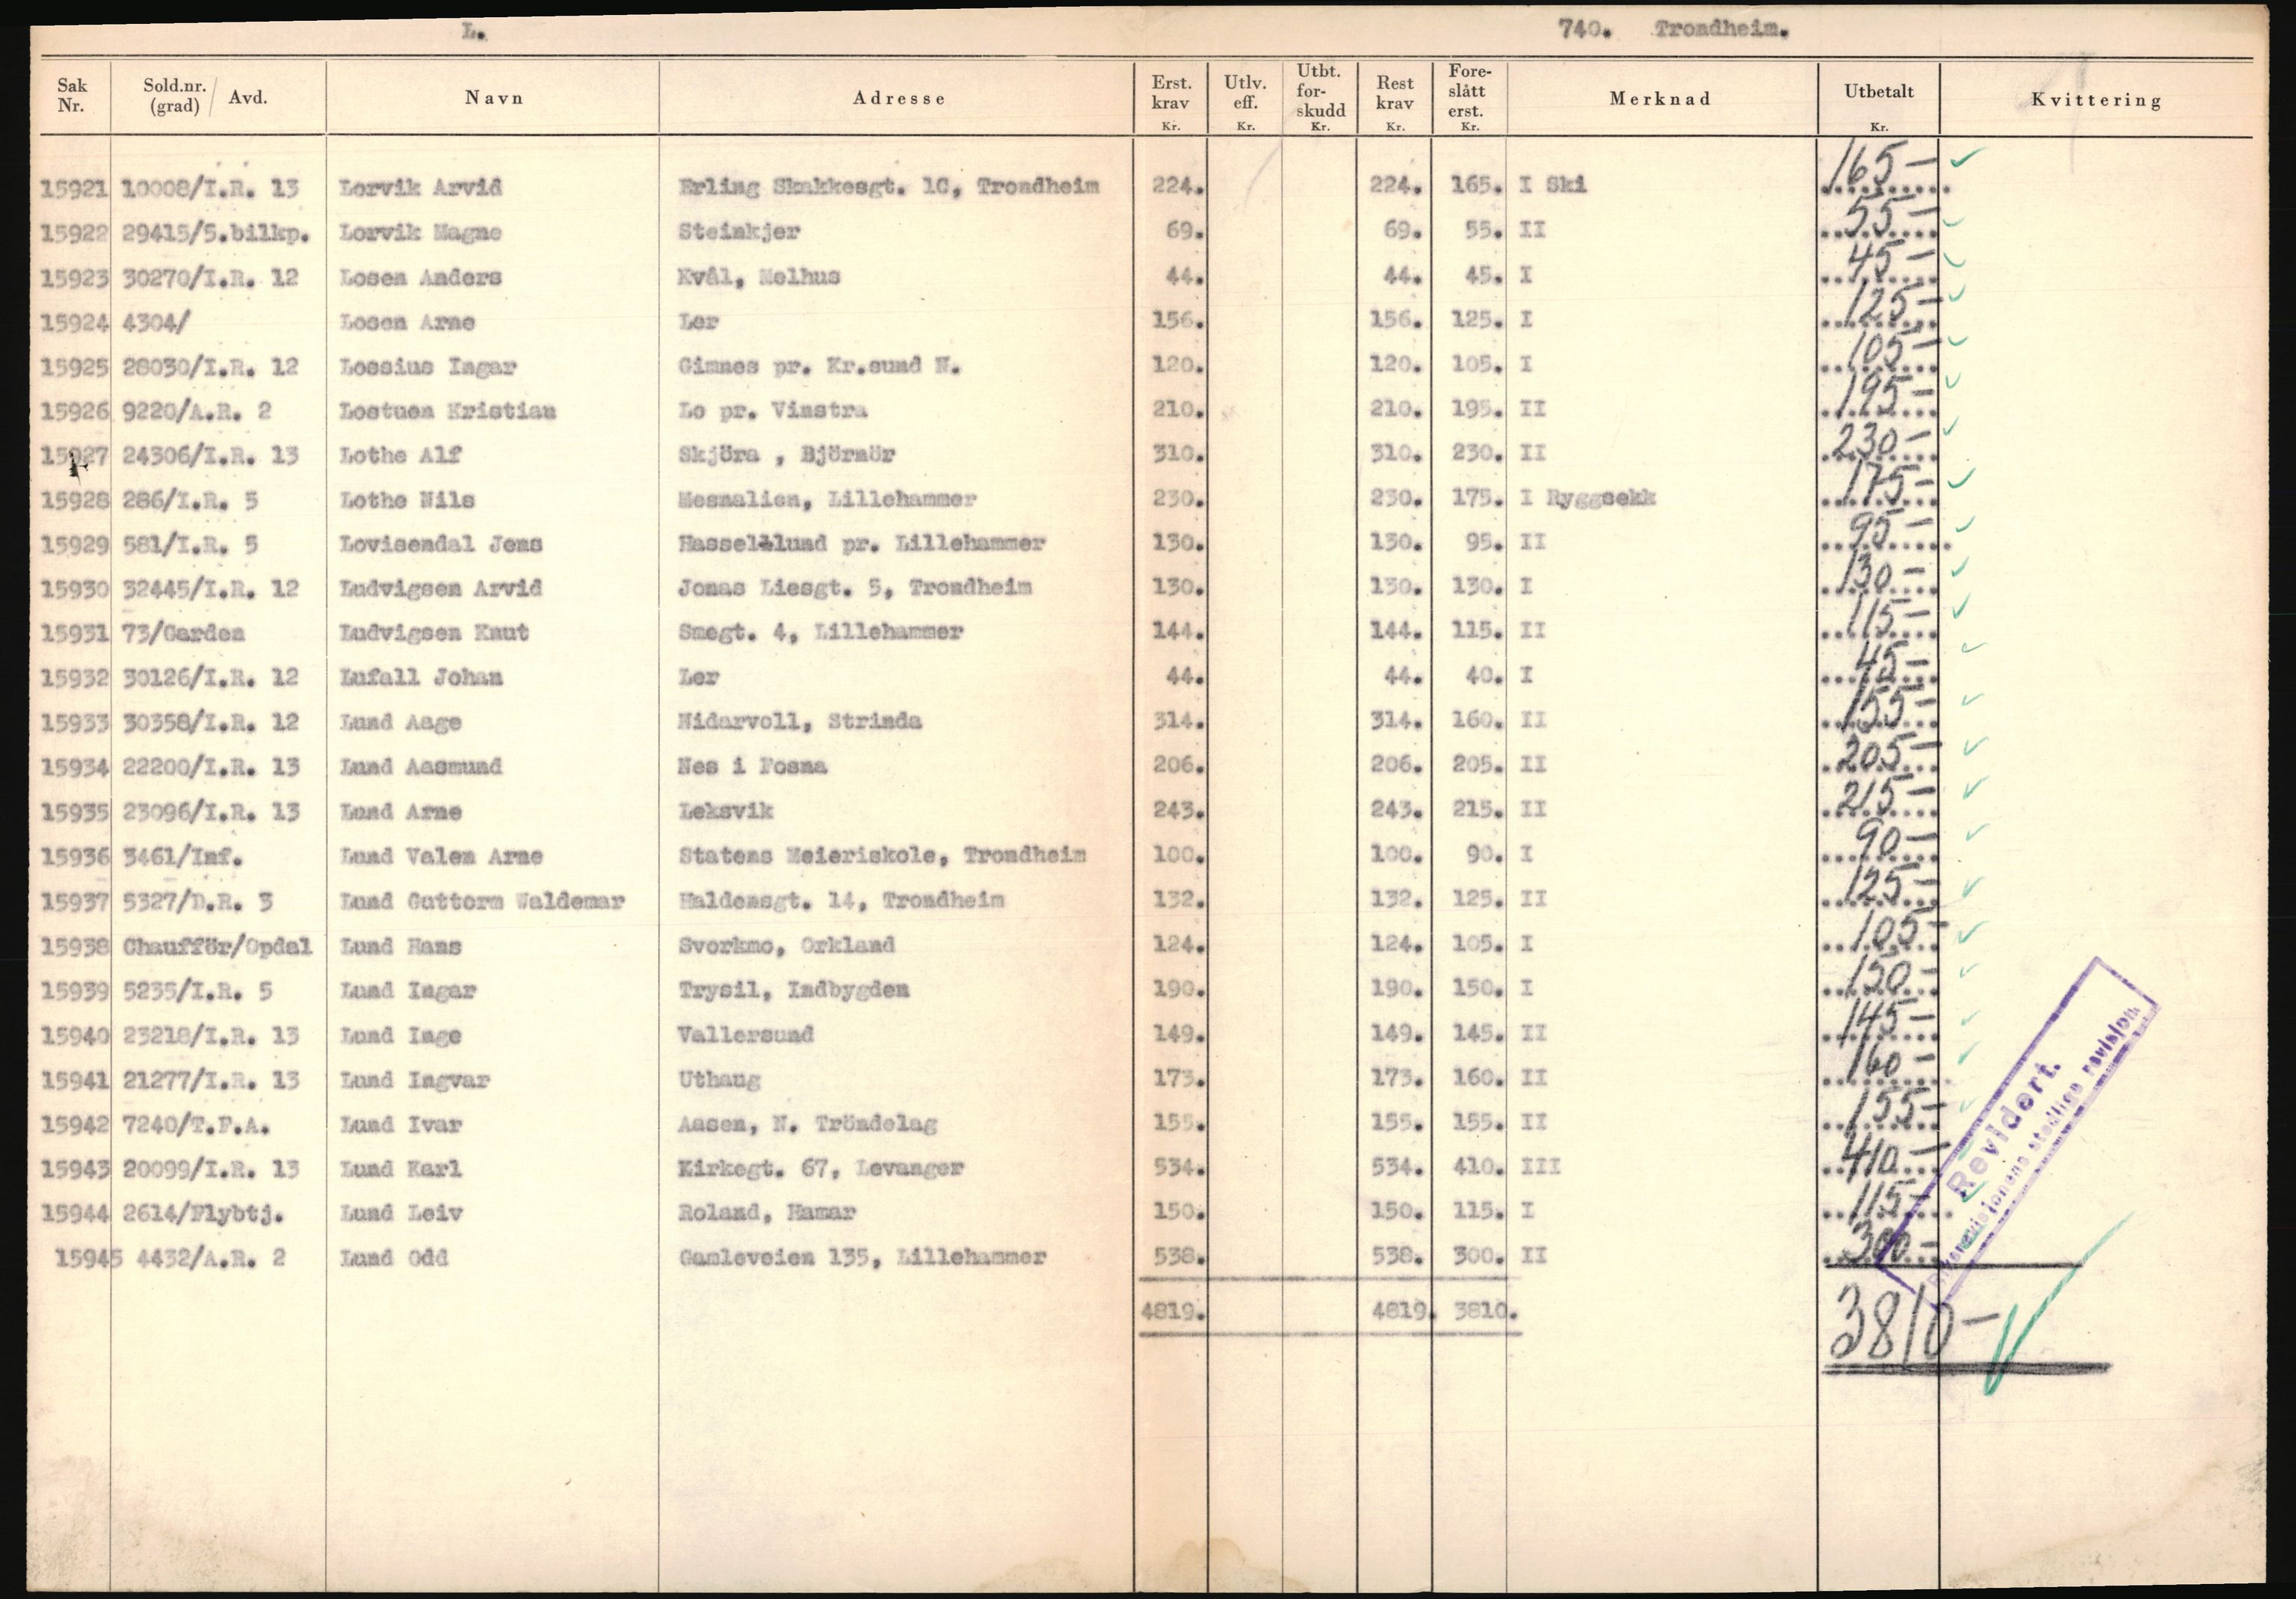 L. 740. Trondheim.
Sak Nr. Sold.nr. (grad) / Avd. Navn Adresse Erst. krav Kr. Utlv. eff. Kr. Utbt. for- skudd Kr. Rest krav Kr. Fore- slått erst. Kr. Merknad Utbetalt Kr. Kvittering
15921 10008/I.R. 13 Lorvik Arvid Erling Skakkesgt. 10, Trondheim 224. 224. 165. I Ski 165-
15922 29415/5.bilkp. Lorvik Magne Steinkjer 69. 69. 55. II 55-
15923 30270/I.R. 12 Losen Anders Kvål, Melhus 44. 44. 45. I 45-
15924 4304/ Losen Arne Ler 156. 156. 125. I 125-
15925 28030/I.R. 12 Lossius Ingar Gimnes pr. Kr.sund N. 120. 120. 105. I 105-
15926 9220/A.R. 2 Lostuen Kristian Lo pr. Vinstra 210. 210. 195. II 195-
15927 24306/I.R. 13 Lothe Alf Skjöra , Björnör 310. 310. 230. II 230-
15928 286/I.R. 5 Lothe Nils Mesnalien, Lillehammer 230. 230. 175. I Ryggsekk 175-
15929 581/I.R. 5 Lovisendal Jens Hasselklund pr. Lillehammer 130. 130. 95. II 95-
15930 32445/I.R. 12 Ludvigsen Arvid Jonas Liesgt. 5, Trondheim 130. 130. 130. I 130-
15931 73/Garden Ludvigsen Knut Smegt. 4, Lillehammer 144. 144. 115. II 115-
15932 30126/I.R. 12 Lufall Johan Ler 44. 44. 40. I 45-
15933 30358/I.R. 12 Lund Aage Nidarvoll, Strinda 314. 314. 160. II 155-
15934 22200/I.R. 13 Lund Aasmund Nes i Fosna 206. 206. 205. II 205-
15935 23096/I.R. 13 Lund Arne Leksvik 243. 243. 215. II 215-
15936 3461/Inf. Lund Valen Arne Statens Meieriskole, Trondheim 100. 100. 90. I 90-
15937 5327/D.R. 3 Lund Guttorm Waldemar Haldensgt. 14, Trondheim 132. 132. 125. II 125-
15938 Chaufför/Opdal Lund Hans Svorkmo, Orkland 124. 124. 105. I 105-
15939 5235/I.R. 5 Lund Ingar Trysil, Indbygden 190. 190. 150. I 150-
15940 23218/I.R. 13 Lund Inge Vallersund 149. 149. 145. II 145-
15941 21277/I.R. 13 Lund Ingvar Uthaug 173. 173. 160. II 160-
15942 7240/T.F.A. Lund Ivar Aasen, N. Tröndelag 155. 155. 155. II 155-
15943 20099/I.R. 13 Lund Karl Kirkegt. 67, Levanger 534. 534. 410. III 410-
15944 2614/Flybtj. Lund Leiv Roland, Hamar 150. 150. 115. I 115-
15945 4432/A.R. 2 Lund Odd Gamleveien 135, Lillehammer 538. 538. 300. II 300-
4819. 4819. 3810. 3810-
Revidert.
stedlige revisjon.